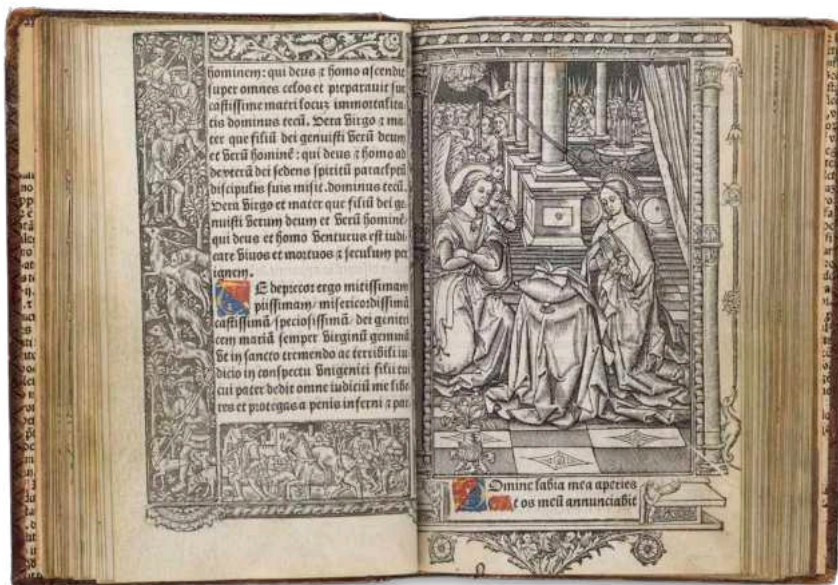 hominem: qui deus ⁊ homo ascendit
super omnes celos et preparauit sue
castissime matri locuz immortalita
tis dominus tecũ. Vera virgo ⁊ ma
ter que filiũ dei genuisti verũ deum
et verũ hominẽ: qui deus ⁊ homo ad
dexterã dei sedens spiritũ
discipulis suis misit. dominus tecũ.
Vera virgo et mater que filiũ dei ge
nuisti verum deum et verũ hominẽ
qui deus et homo venturus est iudi
care viuos et mortuos ⁊ seculum per
ignem.
E deprecor ergo mitissimam
piissimam/ misericordissimã
castissimã/ speciosissimã/ dei genitri
cem mariã semper virginũ gemmã
vt in sancto tremendo ac terribili iu
dicio in conspectu vnigeniti filii tui
cui pater dedit omne iudiciũ me libe
res et protegas a penis inferni ⁊ par
Domine labia mea aperies
Et os meũ annunciabit